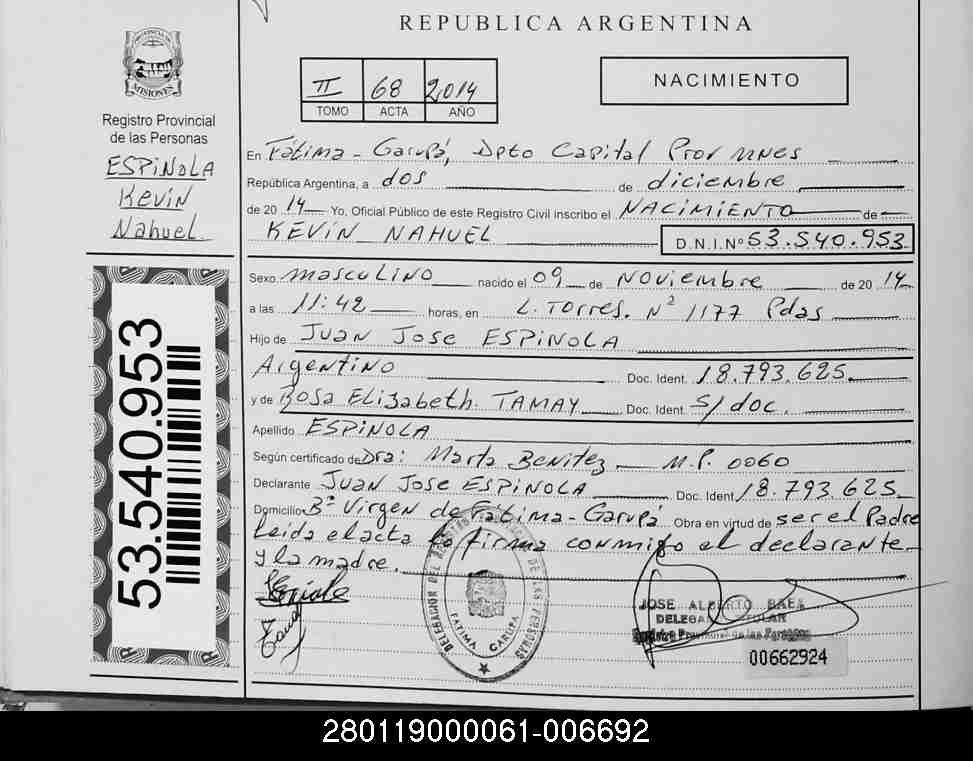 REPUBLICA ARGENTINA
PROVINCIA DE
MISIONES
Registro Provincial
de las Personas
ESPINOLA
Kevin
Nahuel
53.540.953
II 68 2014
TOMO ACTA AÑO
NACIMIENTO
En Fátima - Garupá, Dpto Capital Prov MNES
República Argentina, a dos de diciembre
de 20 14 Yo, Oficial Público de este Registro Civil inscribo el NACIMIENTO de
KEVIN NAHUEL D.N.I.Nº 53.540.953
Sexo masculino nacido el 09 de NOVIEMBRE de 20 14
a las 11:42 horas, en L. Torres. Nº 1177 Pdas
Hijo de JUAN JOSE ESPINOLA
Argentino Doc. Ident. 18.793.625
y de Rosa Elizabeth TAMAY Doc. Ident. S/doc.
Apellido ESPINOLA
Según certificado de Dra: Marta Benitez M.P. 0060
Declarante JUAN JOSE ESPINOLA Doc. Ident 18.793.625
Domicilio Bº Virgen de Fátima - Garupá Obra en virtud de ser el Padre
Leida el acta la firma conmigo el declarante
y la madre.
DELEGACION DEL REGISTRO DE LAS PERSONAS
FATIMA GARUPA
JOSE ALBERTO BAEZ
DELEGADO TITULAR
Registro Provincial de las Personas
00662924
280119000061-006692